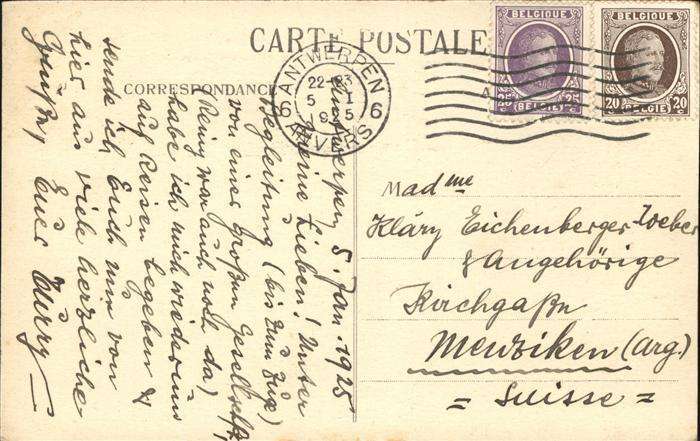 CARTE POSTALE
CORRESPONDANCE
BELGIQUE
25 25
BELGIË
BELGIQUE
20 20
BELGIË
ANTWERPEN
22-23
6 5 I 6
1925
ANVERS
Antwerpen, 5. Jan. 1925
Meine Lieben! Unter
Begleitung (bis zum Zuge)
von einer großen Gesellsch.
(Reiny war auch noch da)
habe ich mich wiederum
auf Reisen begeben &
sende ich Euch nun von
hier aus viele herzliche
Grüße,
Euer
Madme
Kläry Eichenberger-Weber
& Angehörige
Kirchgaße
Menziken (Arg.)
= Suisse =